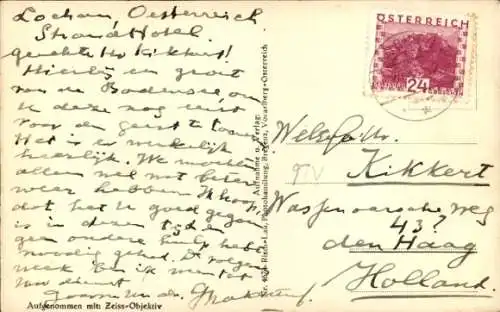 Lochau, Oesterreich
Strand Hotel.
Geachte Hr Kikkert!
Hierbij een groet
van de Bodensee om
U deze nog eens
voor den geest te
Het is er werkelijk
heerlijk. We mochten
alleen wel wat beter
weer hebben. Ik hoop
dat het U goed gegaan
is in dezen tijd en
geen andere hulp hebt
noodig gehad. De volgende
week ben ik weer tot
Uw dienst
Gaarne Uw dr.
Aufgenommen mit: Zeiss-Objektiv
Aufnahme u. Verlag:
Risch-Lau, Photohandlung, Bregenz, Vorarlberg-Österreich
ÖSTERREICH
24
Welgeb. Hr.
Kikkert
Wassenaarsche weg
43?
den Haag
Holland